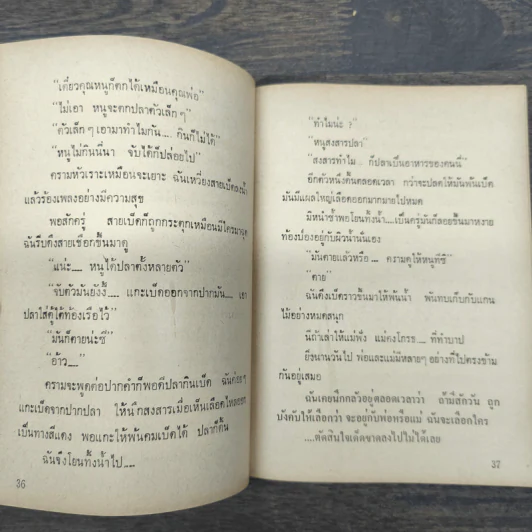 "เดี๋ยวคุณหนูก็ตกได้เหมือนคุณพ่อ"
"ไม่เอา หนูจะตกปลาตัวเล็กๆ"
"ตัวเล็กๆเอามาทำไมกัน.... กินก็ไม่ได้"
"หนูไม่กินนี่นา จับได้ก็ปล่อยไป"
ครามหัวเราะเหมือนจะเยาะ ฉันเหวี่ยงสายเบ็ดลงน้ำ
แล้วร้องเพลงอย่างมีความสุข
พอสักครู่ สายเบ็ดก็ถูกกระตุกเหมือนมีใครมาดึง
ฉันรีบดึงสายเชือกขึ้นมาดู
"แน่ะ.... หนูได้ปลาตั้งหลายตัว"
"จับตัวมันยังงี้.... แกะเบ็ดออกจากปากมัน.... เอา
ปลาใส่ตู้ใต้ท้องเรือไว้"
"มันก็ตายน่ะซี"
"อ้าว...."
ครามจะพูดต่อปากคำก็พอดีปลากินเบ็ด ฉันค่อยๆ
แกะเบ็ดจากปากปลา ให้นึกสงสารเมื่อเห็นเลือดไหลออก
เป็นทางสีแดง พอแกะให้พ้นคมเบ็ดได้ ปลาก็ดิ้น
ฉันจึงโยนทิ้งน้ำไป....
36
"ทำไมน่ะ ?"
"หนูสงสารปลา"
"สงสารทำไม.. ก็ปลาเป็นอาหารของคนนี่"
อีกตัวหนึ่งดิ้นตลอดเวลา กว่าจะปลดให้มันพ้นเบ็ด
มันมีแผลใหญ่เลือดออกมากมายไปหมด
มิหนำซ้ำพอโยนทิ้งน้ำ....เป็นครู่มันก็ลอยขึ้นมาหงาย
ท้องป่องอยู่กับผิวน้ำนั่นเอง
"มันตายแล้วหรือ ... ครามดูให้หนูทีซิ"
"ตาย"
ฉันดึงเบ็ดราวขึ้นมาให้พ้นน้ำ พันทบเก็บกับแกน
ไม้อย่างหมดสนุก
นี่ถ้าเล่าให้แม่ฟัง แม่คงโกรธ.... ที่ทำบาป
ยิ่งนานวันไป พ่อและแม่มีหลายๆ อย่างที่ไปตรงข้าม
กันอยู่เสมอ
ฉันเคยนึกกลัวอยู่ตลอดเวลาว่า ถ้ามีสักวัน ถูก
บังคับให้เลือกว่า จะอยู่กับพ่อหรือแม่ ฉันจะเลือกใคร
....ตัดสินใจเด็ดขาดลงไปไม่ได้เลย
37